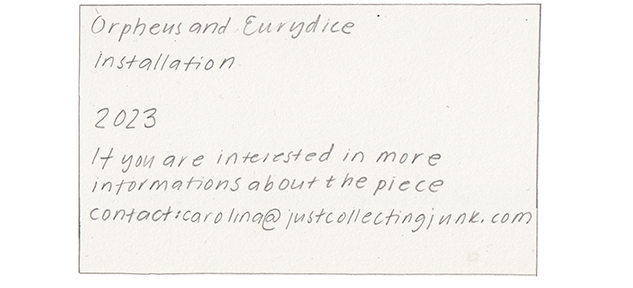 Orpheus and Eurydice
Installation
2023
If you are interested in more
informations about the piece
contact:carolina@justcollectingjunk.com